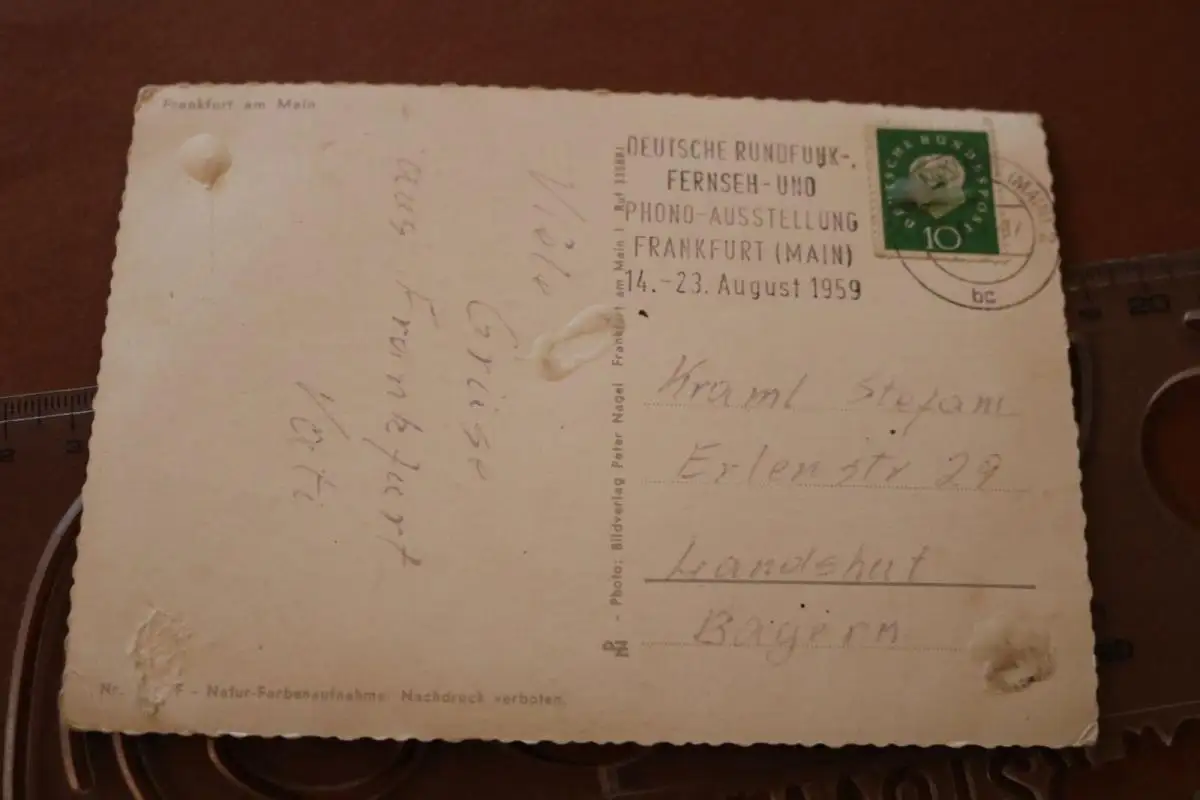 Frankfurt am Main
Viele
Grüße
aus Frankfurt
DEUTSCHE RUNDFUNK-,
FERNSEH-UND
PHONO-AUSSTELLUNG
FRANKFURT (MAIN)
14.-23. August 1959
DEUTSCHE BUNDESPOST
10
(MAIN) 2
bc
Photo: Bildverlag Peter Nagel Frankfurt am Main 1 Ruf
Kraml Stefan
Erlenstr 29
Landshut
Bayern
Nr. F - Natur-Farbenaufnahme Nachdruck verboten.
20